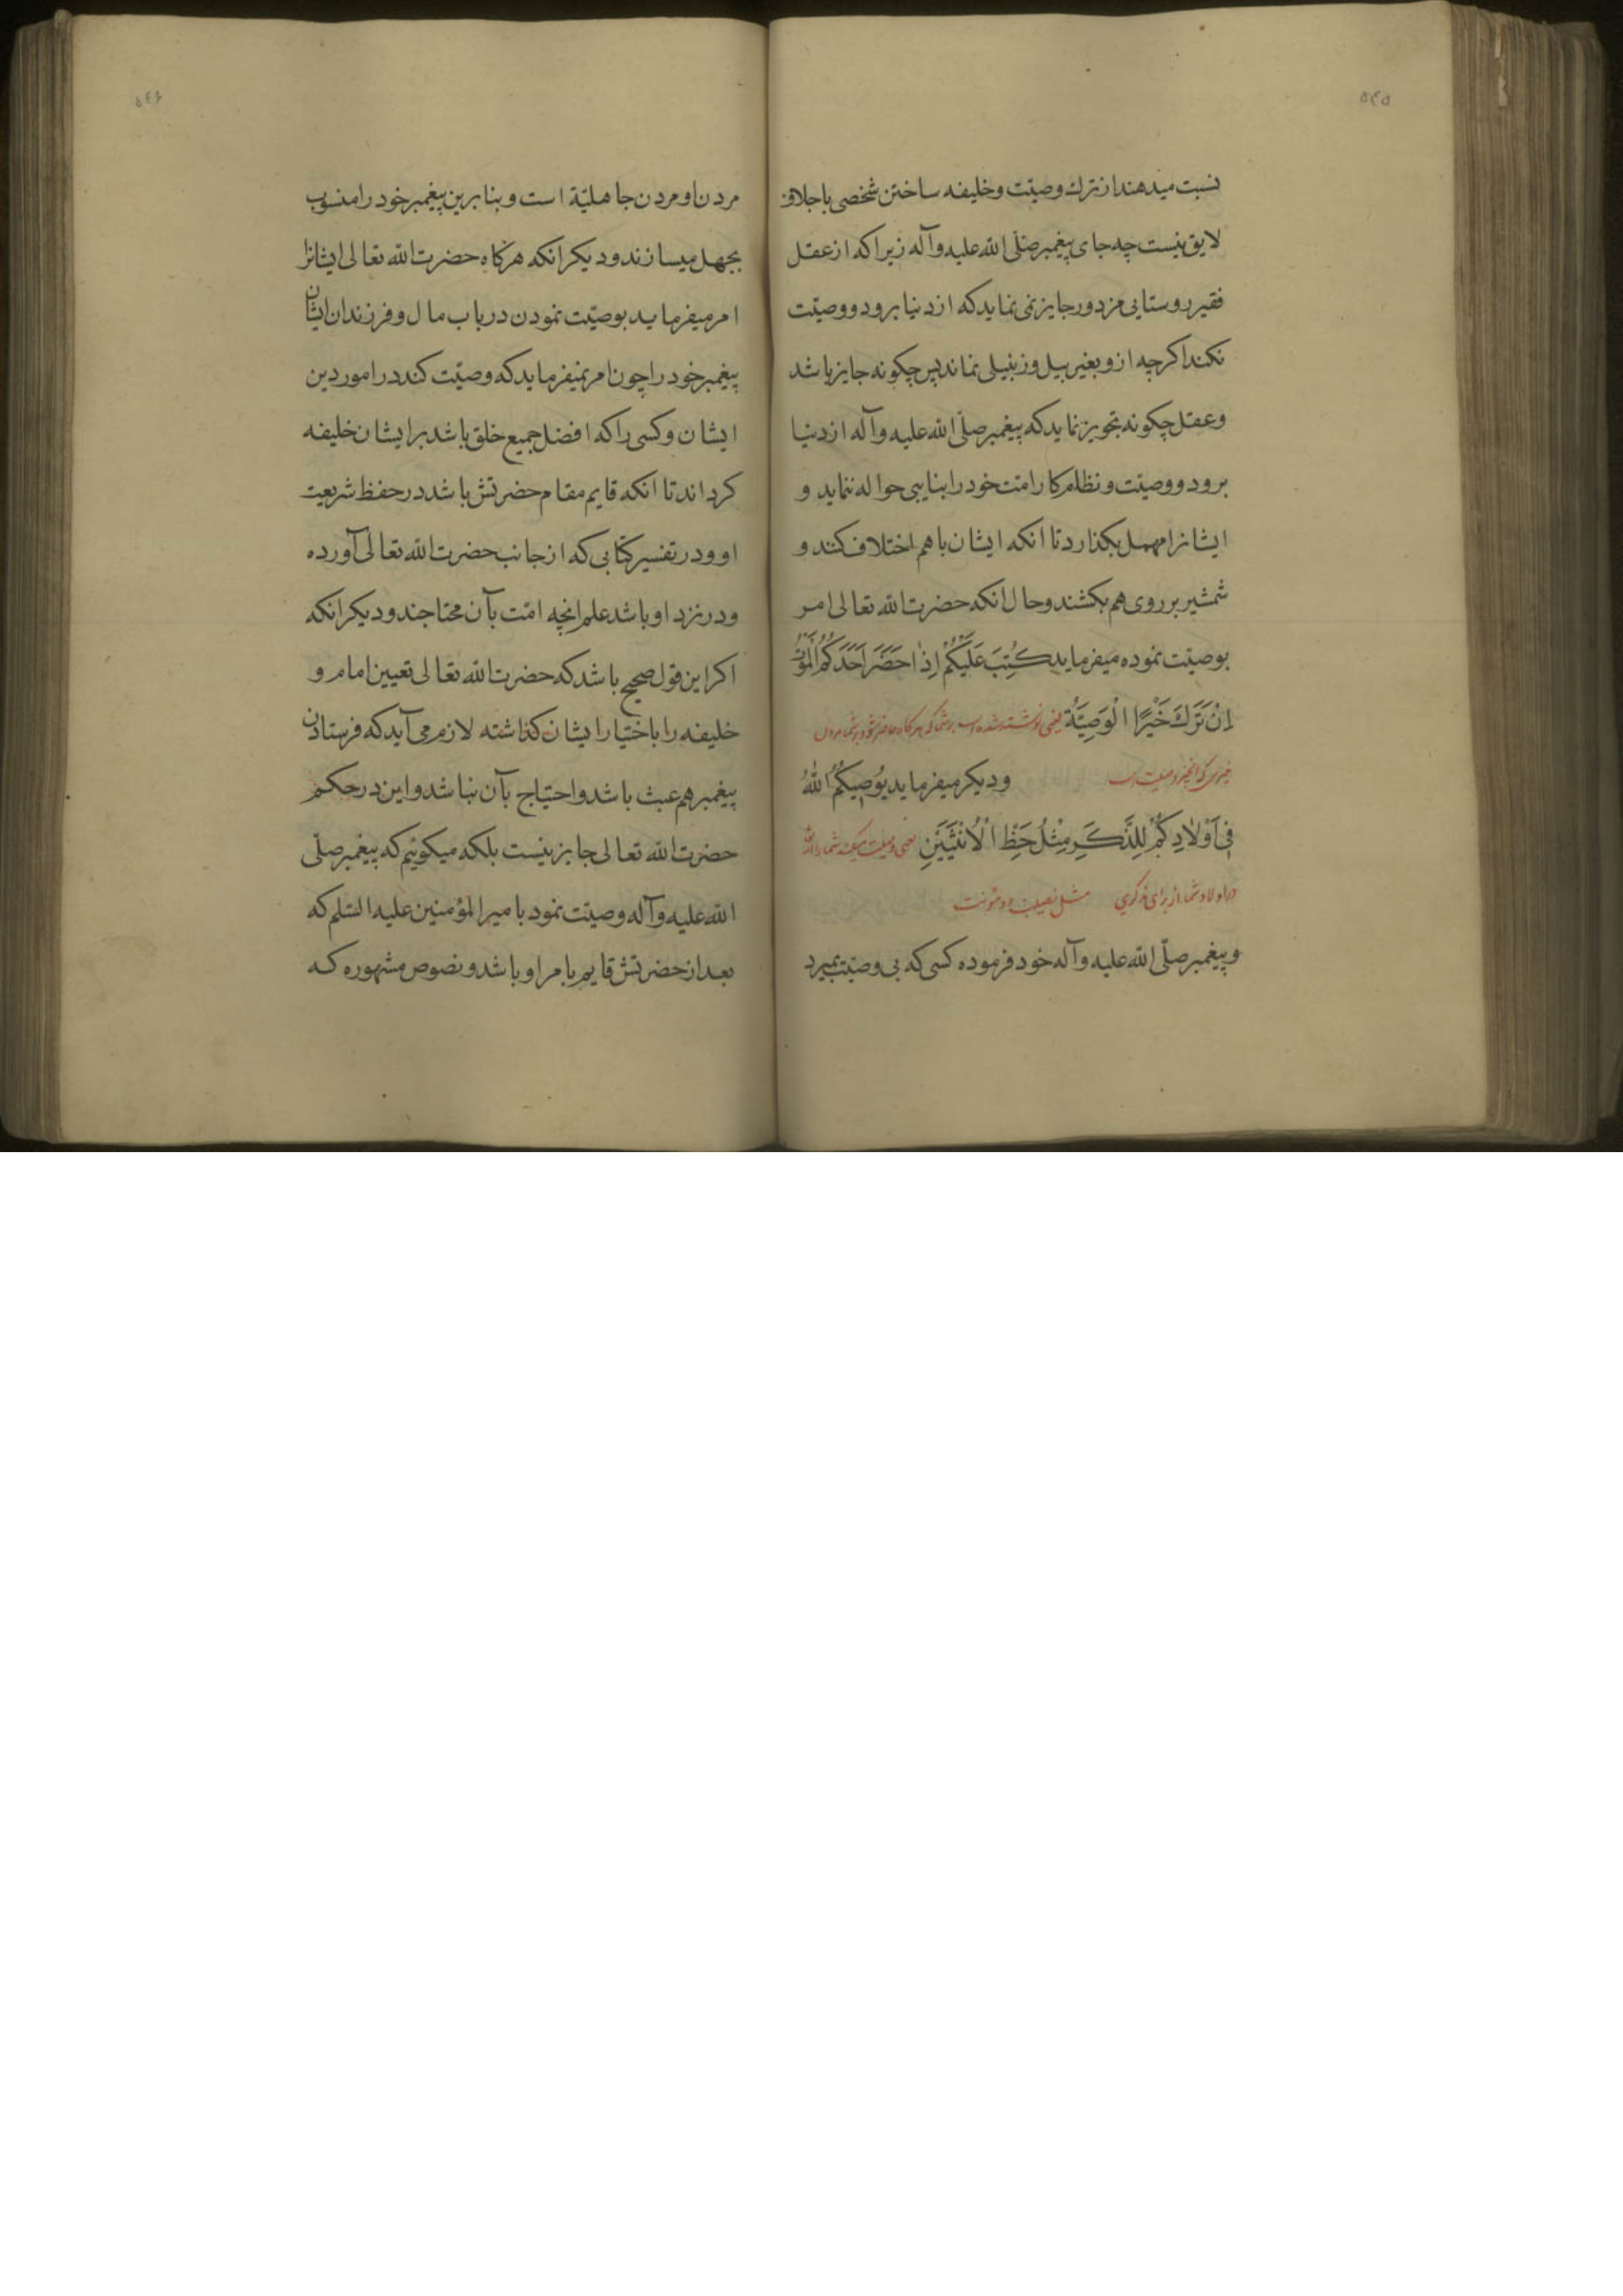 ۵۴۵
نسبت میدهند از ترك وصیّت وخلیفه ساختن شخصی باجلاف
لایق نیست چه جای پیغمبر صلّی الله علیه وآله زیرا که از عقل
فقیر روستایی مزدور جایز نمی نماید که از دنیا برود ووصیّت
نکند اکرچه ازو بغیر بیل وزنبیلی نماند پس چکونه جایز باشد
وعقل چکونه تجویز نماید که پیغمبر صلّی الله علیه وآله از دنیا
برود ووصیّت ونظام کار امّت خود را بنایبی حواله ننماید و
ایشانرا مهمل بکذارد تا انکه ایشان باهم اختلاف کنند و
شمشیر بر روی هم بکشند وحال انکه حضرت الله تعالی امر
بوصیّت نموده میفرماید كُتِبَ عَلَيْكُمْ اِذٰا حَضَرَ اَحَدَكُمُ الْمَوْتُ
اِنْ تَرَكَ خَيْرًا الْوَصِيَّةُ یعنی نوشته شده است بر شما که هرکاه حاضر شود بر شما مردن
ودیکر میفرماید يُوصِيكُمُ اللهُ
فِي اَوْلَادِكُمْ لِلذَّكَرِ مِثْلُ حَظِّ الْاُنْثَيَيْنِ یعنی وصیّت میکند شما را الله
در اولاد شما از برای مذکری مثل نصیب دو مؤنث
وپیغمبر صلّی الله علیه وآله خود فرموده کسی که بی وصیّت بمیرد
۵۴۶
مردن او مردن جاهلیّة است وبنابرین پیغمبر خود را منسوب
بجهل میسازند ودیکر انکه هرکاه حضرت الله تعالی ایشانرا
امر میفرماید بوصیّت نمودن در باب مال وفرزندان ایشان
پیغمبر خود را چون امر نمیفرماید که وصیّت کند در امور دین
ایشان وکسی را که افضل جمیع خلق باشد بر ایشان خلیفه
کرداند تا انکه قایم مقام حضرتش باشد در حفظ شریعت
او ودر تفسیر کتابی که از جانب حضرت الله تعالی آورده
ودر نزد او باشد علم انچه امّت بآن محتاجند ودیکر انکه
اکر این قول صحیح باشد که حضرت الله تعالی تعیین امام و
خلیفه را باختیار ایشان کذاشته لازم می آید که فرستادن
پیغمبر هم عبث باشد واحتیاج بآن نباشد واین در حکم
حضرت الله تعالی جایز نیست بلکه میکوئیم که پیغمبر صلّی
الله علیه وآله وصیّت نمود بامیر المؤمنین علیه السّلم که
بعد از حضرتش قایم بامر او باشد ونصوص مشهوره که